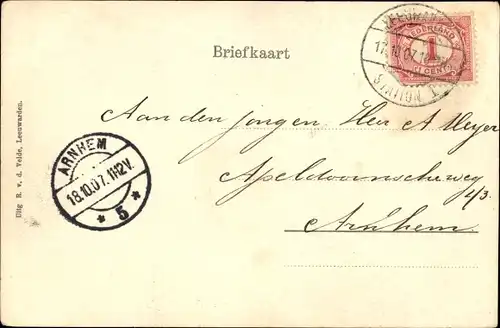 Briefkaart
NEDERLAND
1
CENT
STATION
Aan den jongen Heer A Meyer
Apeldoornscheweg
1/3.
Arnhem.
ARNHEM
18.10.07.11-12V.
* 5 *
Uitg R. v. d. Velde, Leeuwarden.